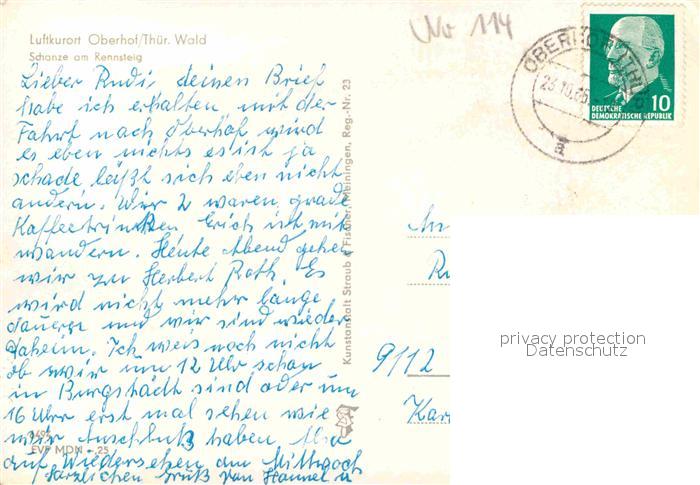 Luftkurort Oberhof/Thür. Wald
Schanze am Rennsteig
No 114
OBERHOF (THÜR)
DEUTSCHE
DEMOKRATISCHE REPUBLIK
10
Lieber Rudi, deinen Brief
habe ich erhalten mit der
Fahrt nach Oberhof wird
es eben nichts es ist ja
schade läßt sich eben nicht
ändern. Wir 2 waren grade
Kaffeetrinken Erich ist mit
wandern. Heute Abend gehen
wir zu Herbert Roth. Es
wird nicht mehr lange
dauern und wir sind wieder
daheim. Ich weis noch nicht
ob wir um 12 Uhr schon
in Burgstädt sind oder um
16 Uhr erst mal sehen wie
wir Anschluß haben. Also
auf Wiedersehen am Mittwoch
Herzlichen Gruß von Hannel u
EVP MDN -.25
Kunstanstalt Straub & Fischer, Meiningen, Reg.-Nr. 23
An
Ru
9112
Kar
privacy protection
Datenschutz